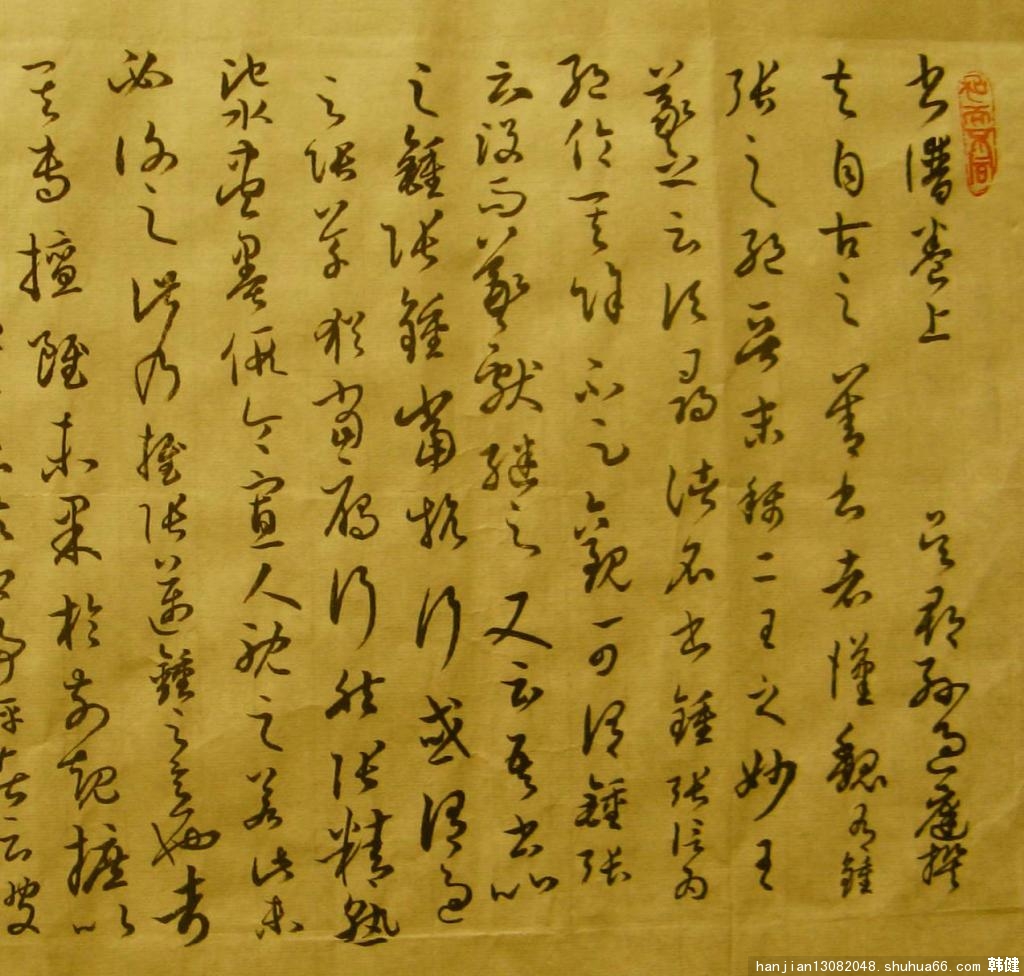 和而不同
書譜卷上 吳郡孫過庭撰
夫自古之善書者漢魏有鍾
張之絕晉末稱二王之妙王
羲之云頃尋諸名書鍾張信為
絕倫其餘不足觀可謂鍾張
云沒而羲獻繼之又云吾書比
之鍾張鍾當抗行或謂過
之張草猶當雁行然張精熟
池水盡墨假令寡人耽之若此未
必謝之此乃推張邁鍾之意也考
其專擅雖未果於前規摭以
hanjian13082048.shuhua66.com 韩健